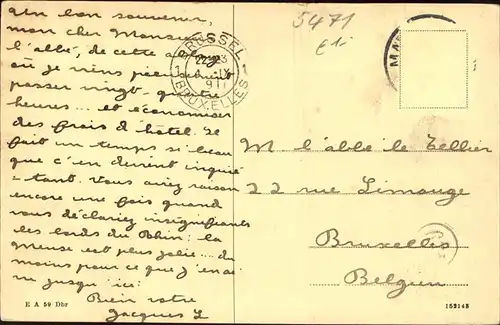 Un bon souvenir,
mon cher Monsieur
l'abbé, de cette
où je viens
passer vingt-quatre
heures... et économiser
des frais d'hôtel. Il
fait un temps si beau
que c'en devient inquié
-tant. Vous aviez raison
encore une fois quand
vous déclariez insignifiants
les bords du Rhin: la
Meuse est plus jolie... du
moins pour ce que j'en ai
vu jusqu'ici.
Bien vôtre
Jacques L
E A 59 Dbr
5471
BRUSSEL
1911
BRUXELLES
M l'abbé le Tellier
22 rue Limauge
Bruxelles
Belgien
152145